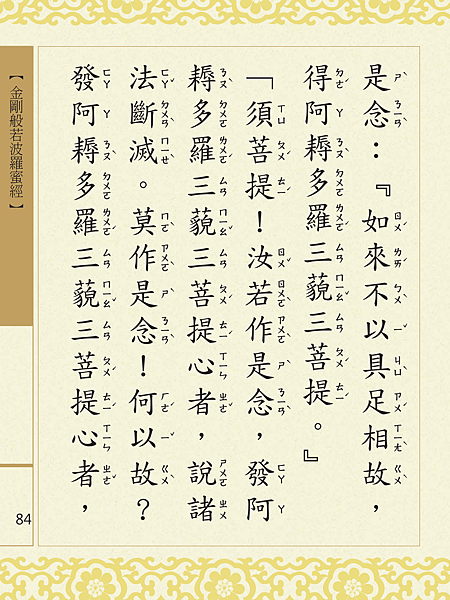 是念：『如來不以具足相故，
得阿耨多羅三藐三菩提。』
「須菩提！汝若作是念，發阿
耨多羅三藐三菩提心者，說諸
法斷滅。莫作是念！何以故？
發阿耨多羅三藐三菩提心者，
【金剛般若波羅蜜經】
84